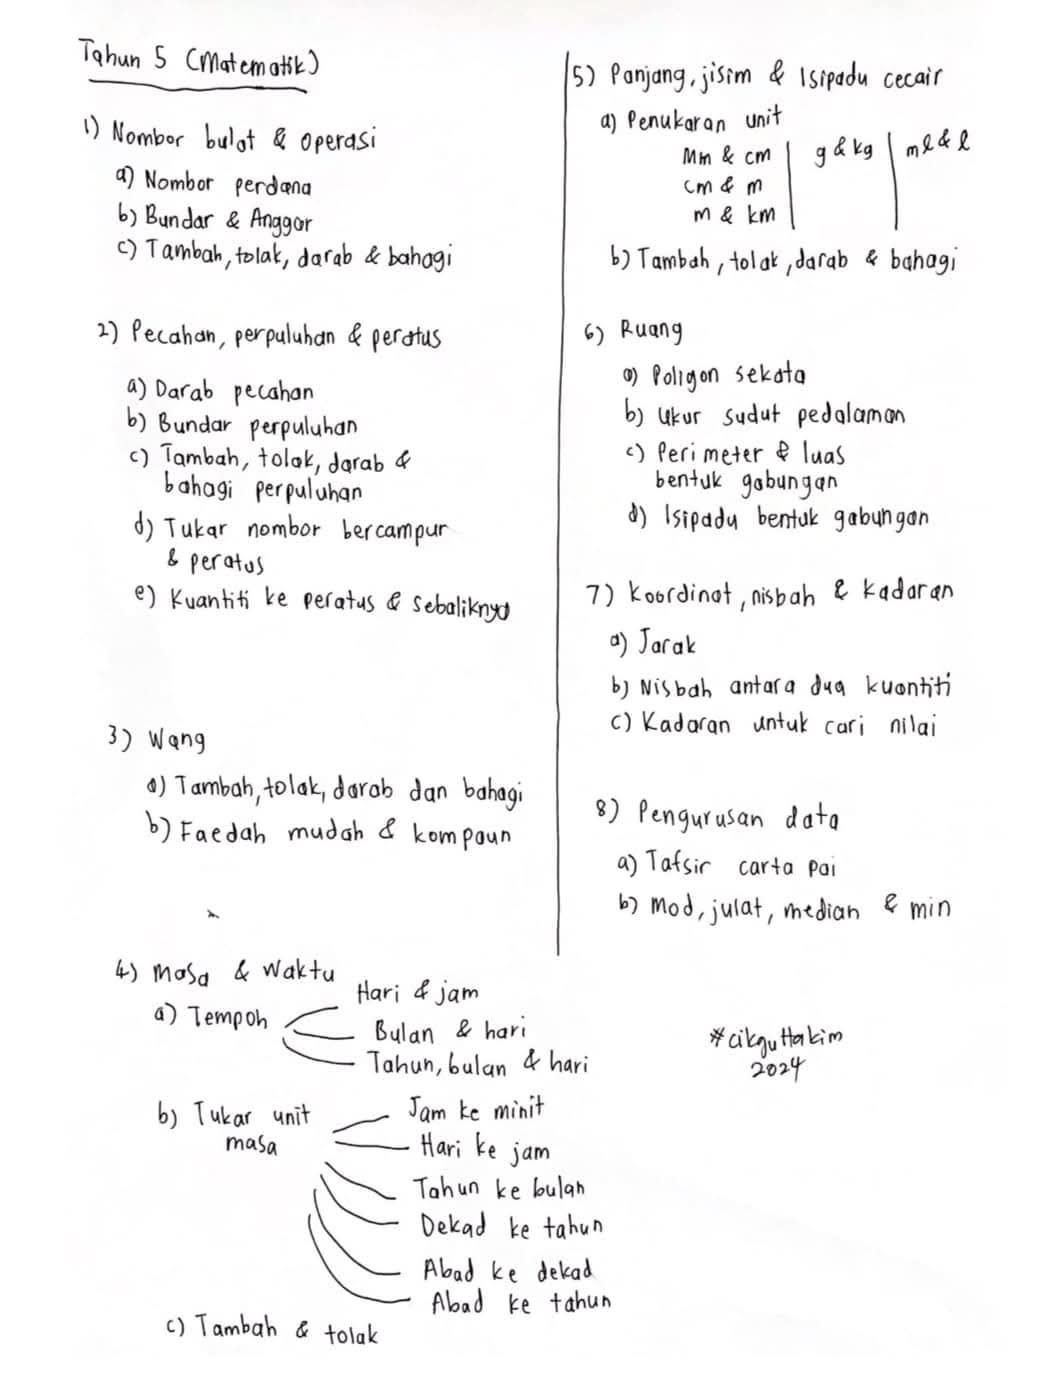 Tahun 5 (Matematik)
1) Nombor bulat & operasi
a) Nombor perdana
b) Bundar & Anggar
c) Tambah, tolak, darab & bahagi
2) Pecahan, perpuluhan & peratus
a) Darab pecahan
b) Bundar perpuluhan
c) Tambah, tolak, darab &
bahagi perpuluhan
d) Tukar nombor bercampur
& peratus
e) Kuantiti ke peratus & sebaliknya
3) Wang
a) Tambah, tolak, darab dan bahagi
b) Faedah mudah & kompaun
4) Masa & Waktu
a) Tempoh
Hari & jam
Bulan & hari
Tahun, bulan & hari
b) Tukar unit
masa
Jam ke minit
Hari ke jam
Tahun ke bulan
Dekad ke tahun
Abad ke dekad
Abad ke tahun
c) Tambah & tolak
5) Panjang, jisim & Isipadu cecair
a) Penukaran unit
Mm & cm
cm & m
m & km
g & kg
ml & l
b) Tambah, tolak, darab & bahagi
6) Ruang
a) Poligon sekata
b) Ukur sudut pedalaman
c) Perimeter & luas
bentuk gabungan
d) Isipadu bentuk gabungan
7) Koordinat, nisbah & kadaran
a) Jarak
b) Nisbah antara dua kuantiti
c) Kadaran untuk cari nilai
8) Pengurusan data
a) Tafsir carta pai
b) Mod, julat, median & min
#cikguHakim
2024